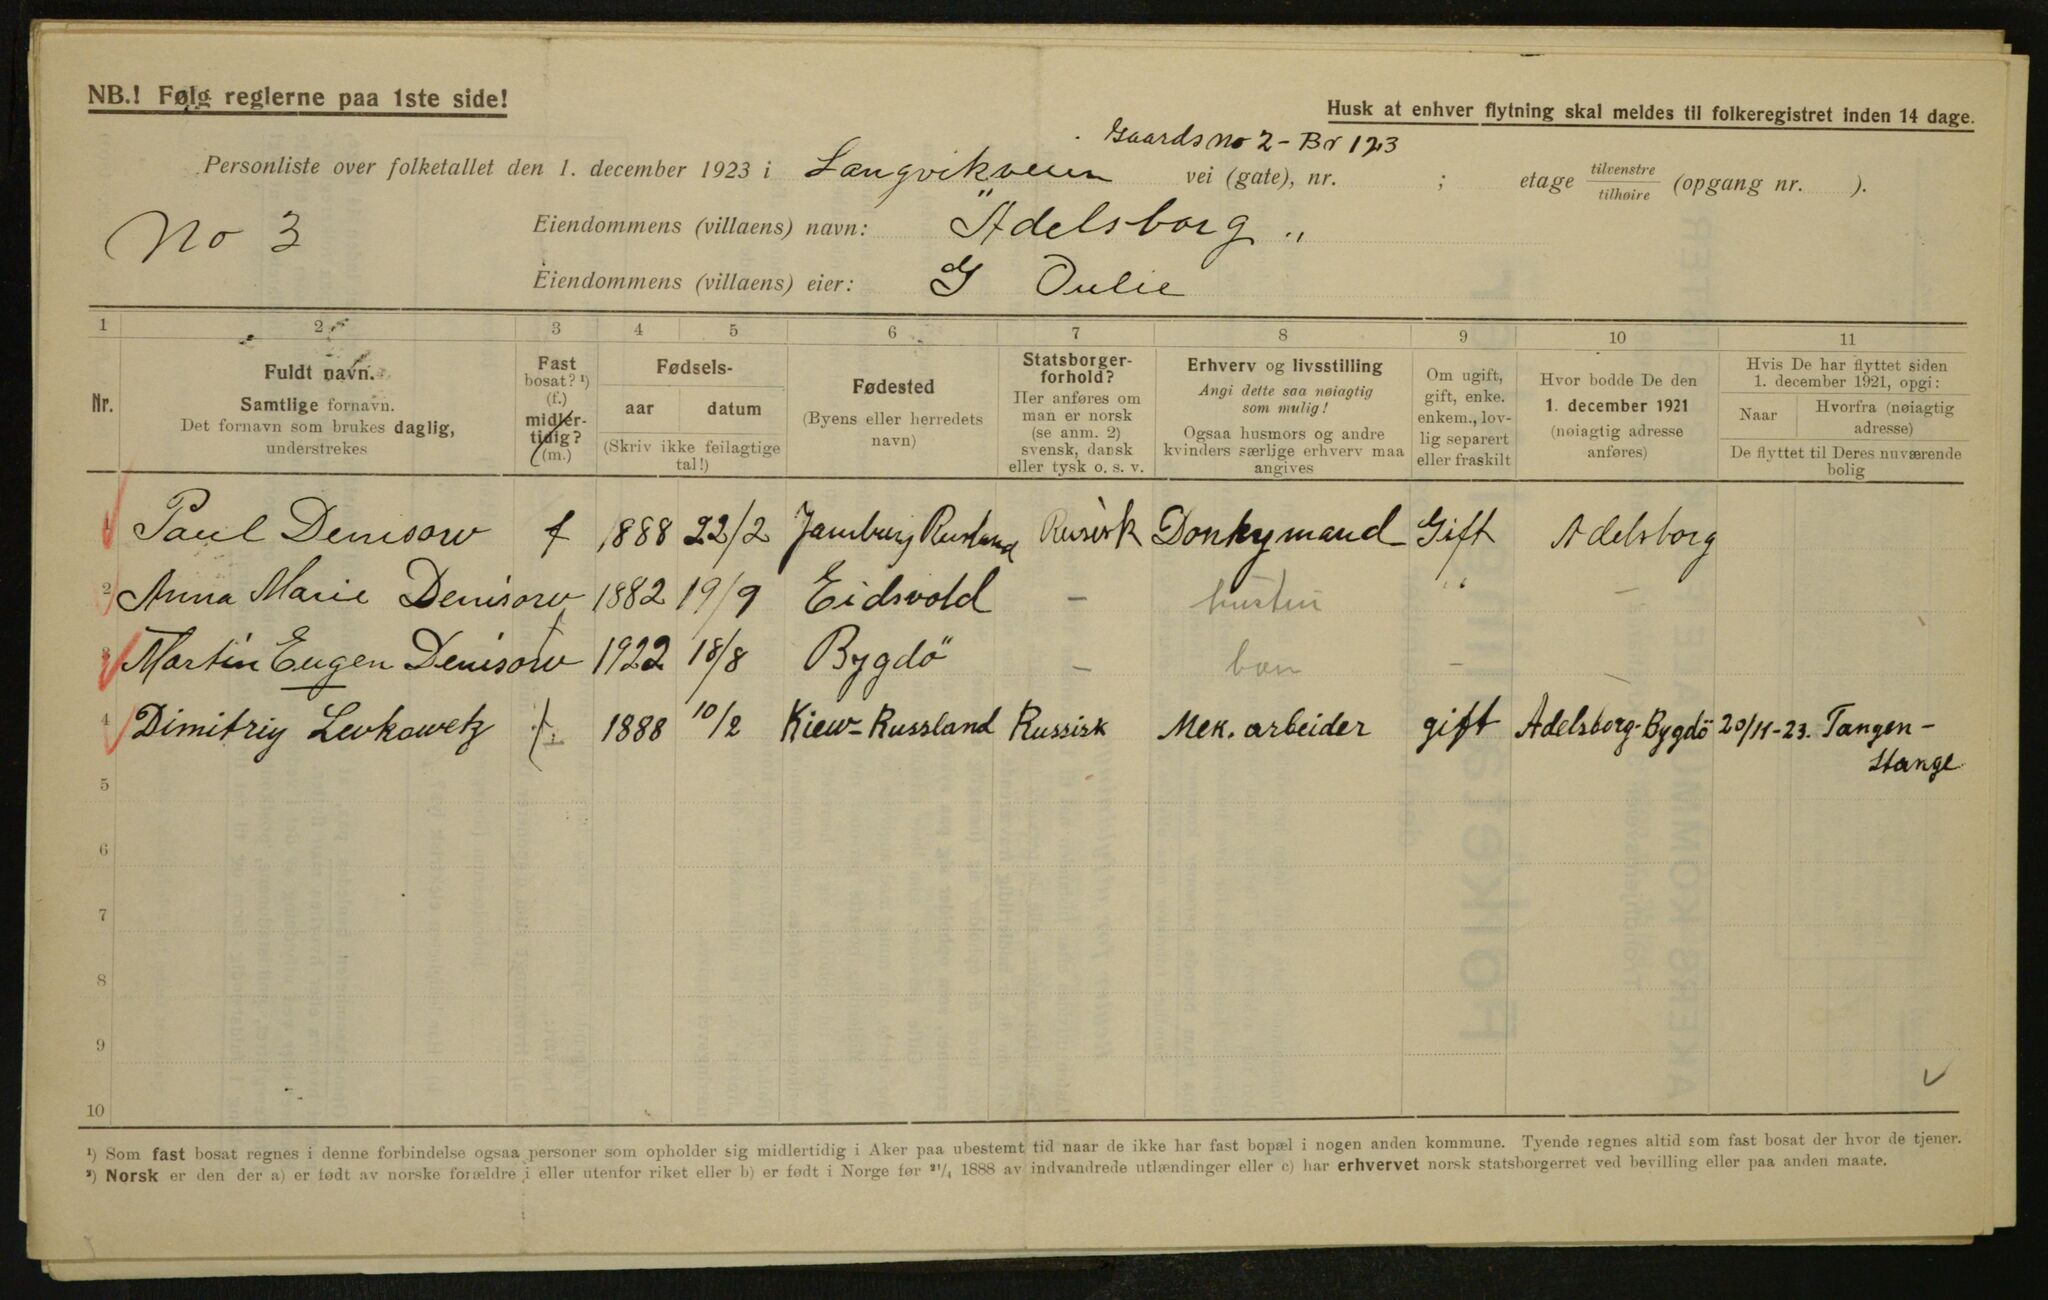 NB.! Følg reglerne paa 1ste side!
Husk at enhver flytning skal meldes til folkeregistret inden 14 dage.
Gaards no 2 - Br 123
Personliste over folketallet den 1. december 1923 i Langviksveien vei (gate), nr. ; etage tilvenstre tilhøire (opgang nr. ).
No 3
Eiendommens (villaens) navn: "Adelsborg"
Eiendommens (villaens) eier: G Oulie
1 2 3 4 5 6 7 8 9 10 11
Nr.
Fuldt navn.
Samtlige fornavn.
Det fornavn som brukes daglig,
understrekes
Fast
bosat? ¹)
(f.)
midler-
tidig?
(m.)
Fødsels-
aar datum
(Skriv ikke feilagtige
tal!)
Fødested
(Byens eller herredets
navn)
Statsborger-
forhold?
Her anføres om
man er norsk
(se anm. 2)
svensk, dansk
eller tysk o. s. v.
Erhverv og livsstilling
Angi dette saa nøiagtig
som mulig!
Ogsaa husmors og andre
kvinders særlige erhverv maa
angives
Om ugift,
gift, enke.
enkem., lov-
lig separert
eller fraskilt
Hvor bodde De den
1. december 1921
(nøiagtig adresse
anføres)
Hvis De har flyttet siden
1. december 1921, opgi:
Naar Hvorfra (nøiagtig
adresse)
De flyttet til Deres nuværende
bolig
1 Paul Denisow f 1888 22/2 Jamburg Rusland Rusisk Donkymand Gift Adelsborg
2 Anna Marie Denisow 1882 19/9 Eidsvold - hustru " -
3 Martin Eugen Denisow f 1922 18/8 Bygdö - barn -
4 Dimitriy Levkowetz f. 1888 10/2 Kiew-Russland Russisk Mek. arbeider gift Adelsborg-Bygdö 20/11-23. Tangen-
Stange
5
6
7
8
9
10
¹) Som fast bosat regnes i denne forbindelse ogsaa personer som opholder sig midlertidig i Aker paa ubestemt tid naar de ikke har fast bopæl i nogen anden kommune. Tyende regnes altid som fast bosat der hvor de tjener.
²) Norsk er den der a) er født av norske forældre i eller utenfor riket eller b) er født i Norge før ²¹/₄ 1888 av indvandrede utlændinger eller c) har erhvervet norsk statsborgerret ved bevilling eller paa anden maate.